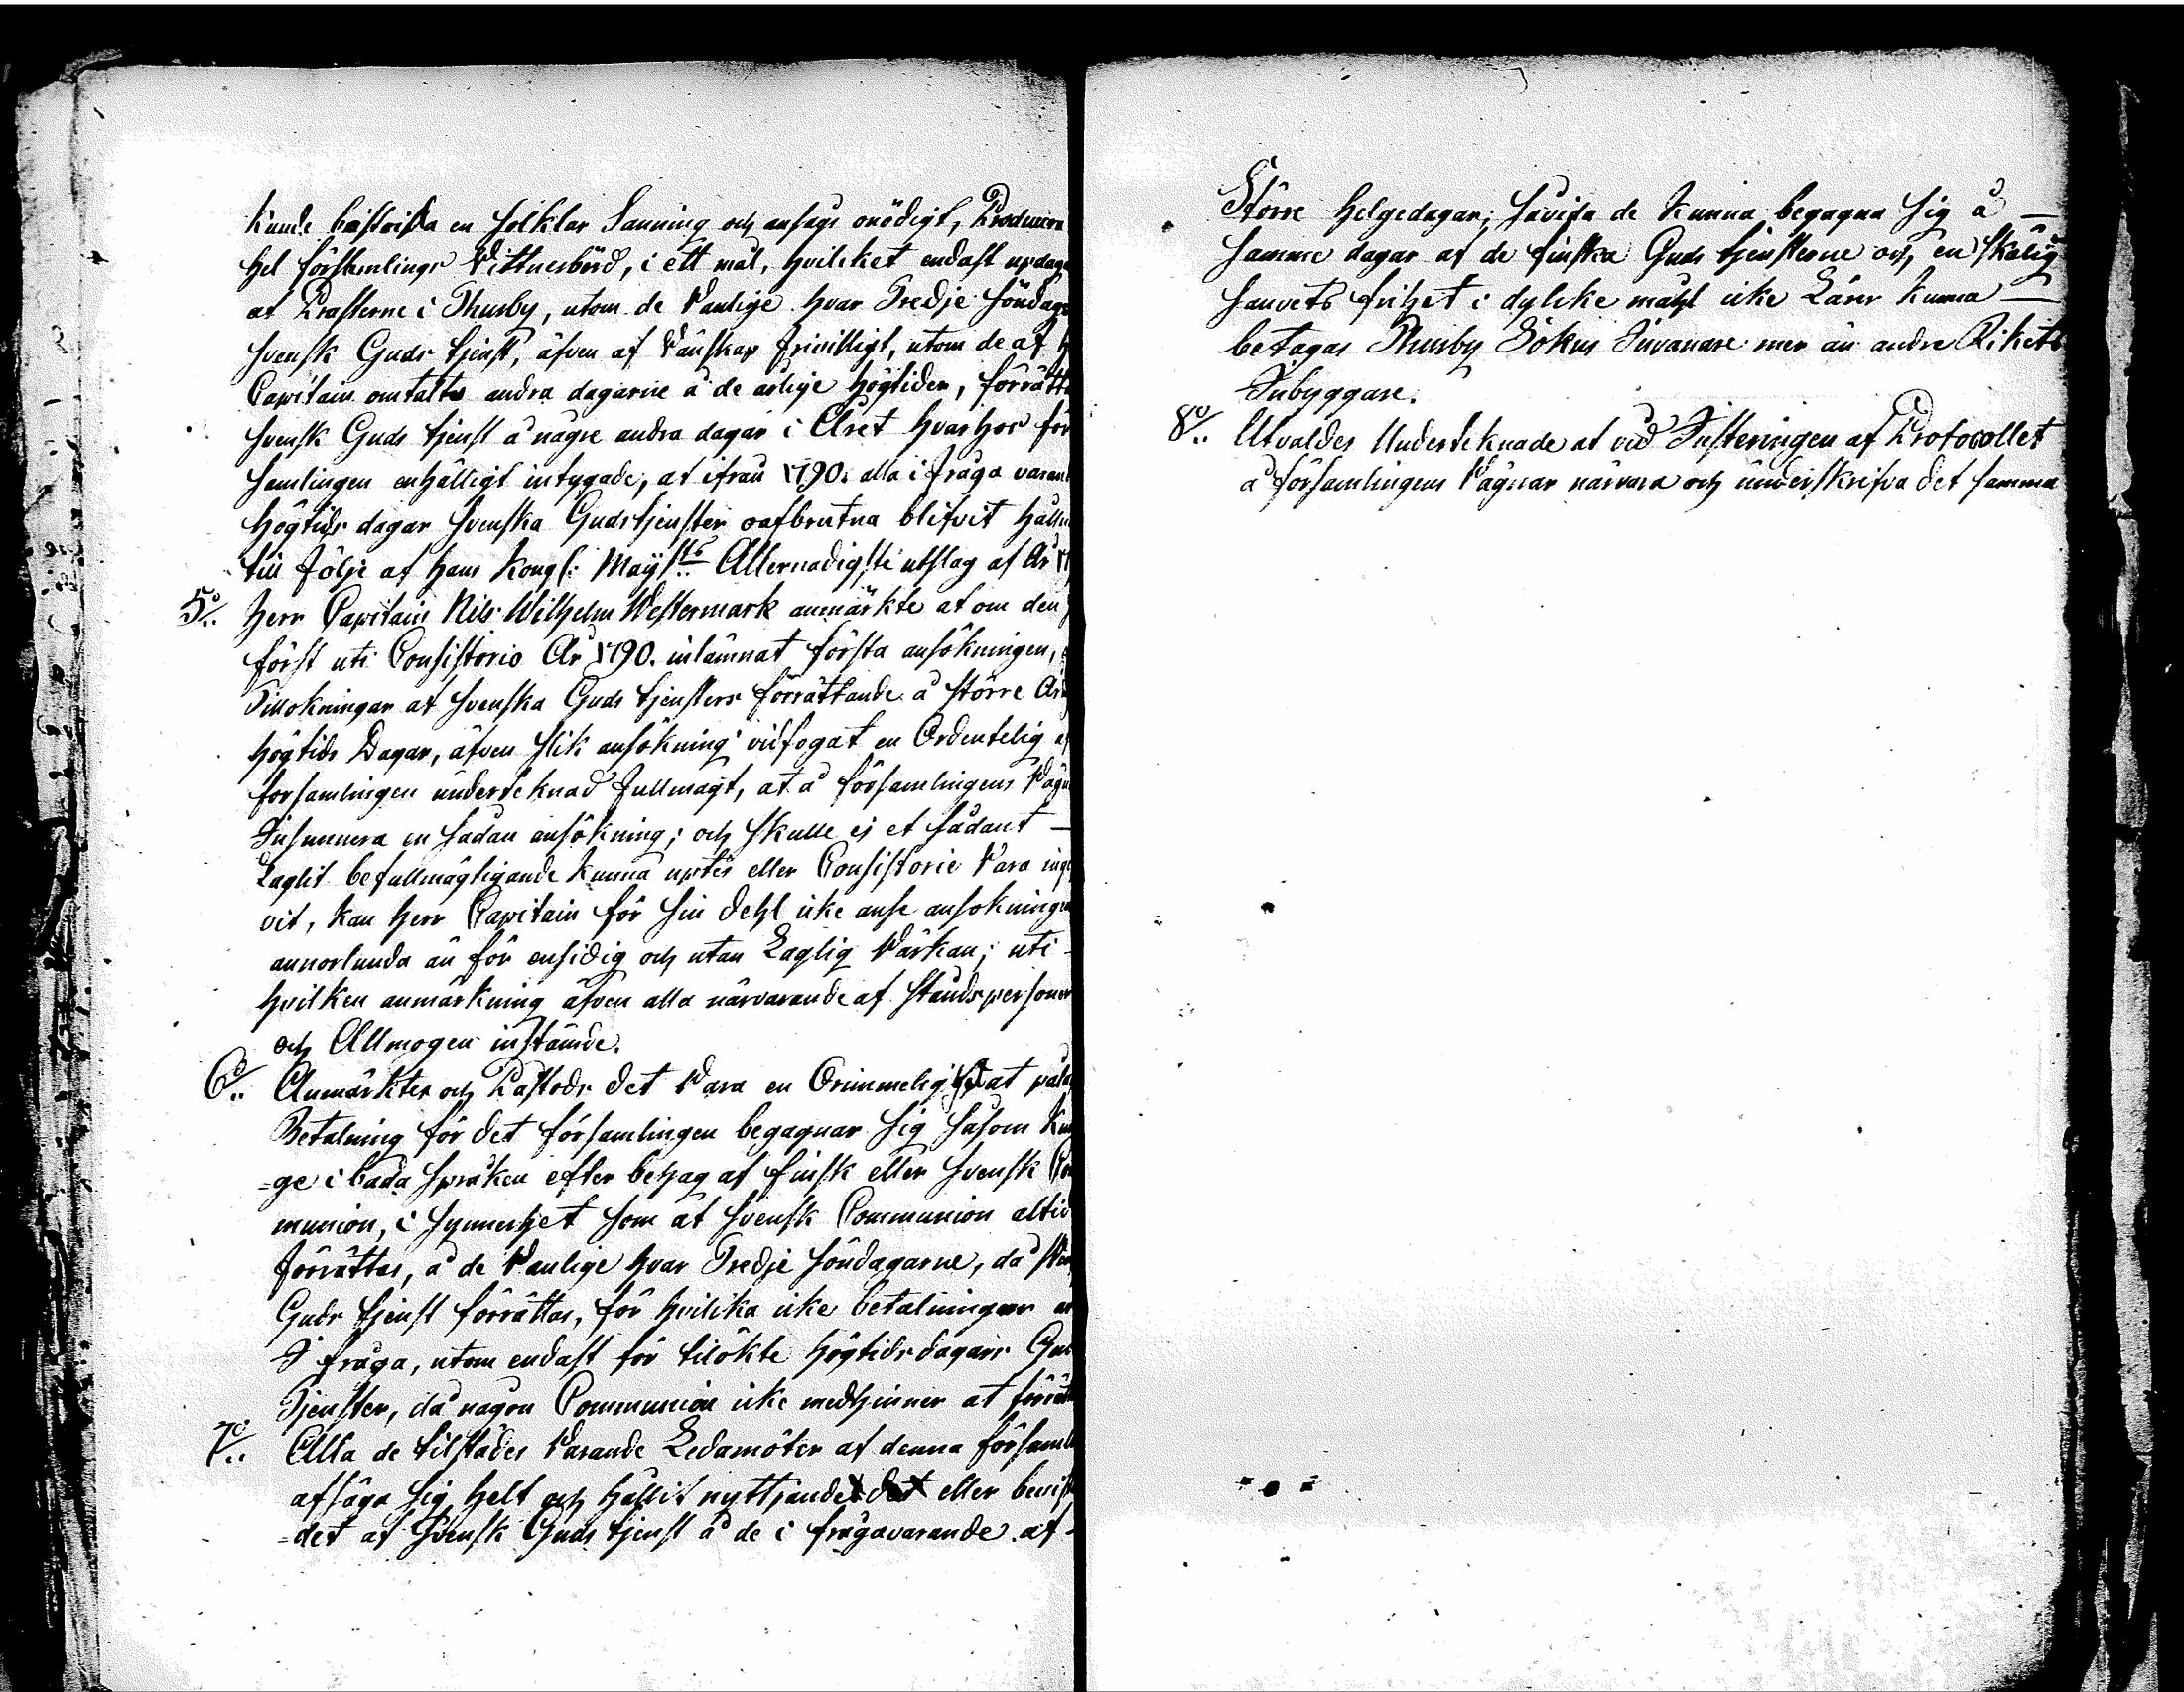 Kunde bestrida en solklar Sanning och ansågs onödigt, Producera
hel församlings Vittnesbörd, i ett mål, hvilcket endast updag
at Prästerne i Thusby, utom de Vanlige hvar Tredje Söndags
Svensk Guds tjenst, äfven af Vänskap frivilligt, utom de af H
Capitain omtalte andra dagarne å de årlige högtider, förrätt
Svensk Guds tjenst å några andra dagar i Året hvarhos för
samlingen enhälligt intygade, at ifrån 1790. alla i fråga varan
högtids dagar Svenska Gudstjenster oafbrutna blifvit hålln
till följe af Hans Kongl: Maÿsts Allernådigste utslag af År 17
5o/.. Herr Capitain Nils Wilhelm Westermark anmärkte at om den
först uti Consistorio År 1790. inlämnat första ansökningen,
Tillökningar at Svenska Guds tjensters förrättande å större År
högtids Dagar, äfven slik ansökning vidfogat en Ordentelig af
församlingen underteknad fullmagt, at å församlingens Vägn
Insinuera en sådan ansökning; och skulle ej et sådant —
Laglit befullmägtigande kunna uptes eller Consistorie Vara ing
vit, kan Herr Capitain för sin dehl icke anse ansökningen
annorlunda än för ensidig och utan Laglig Värkan; uti-
hvilken anmärkning äfven alla närvarande af Ståndspersoner
och Allmogen instämde.
6o/.. Anmärktes och Påstods det Vara en Orimmelighet at påla
Betalning för det församlingen begagnar sig såsom Kun
=ge i båda språken efter behag af finsk eller Svensk Co
munion, i synnerhet som at Svensk Communion altid
förrättas, å de Vanlige hvar Tredje Söndagarne, då Sven
Guds tjenst förrättas, för hvilcka icke betalningar är
I fråga, utom endast för tilökte högtidsdagars Gu
Tjenster, då någon Communion icke medhinner at förrätt
7o/.. Alla de tilstädes Varande Ledamöter af denna församl
afsäga sig helt och hållit nyttjandet det eller bevist
=det af Svensk Guds tjenst å de i frågavarande af-
Större helgedagar; såvida de kunna begagna sig å —
samme dagar af de finska Guds tjensterne och en skälig
samvets frihet i dylicke måhl icke Lärer kunna —
betagas Thusby Sokns Invånare mer än andre Rikets
Inbyggare.
8o/.. Utvaldes Undertecknade at vid Justeringen af Protocollet
å församlingens Vägnar närvara och underskrifva det samma